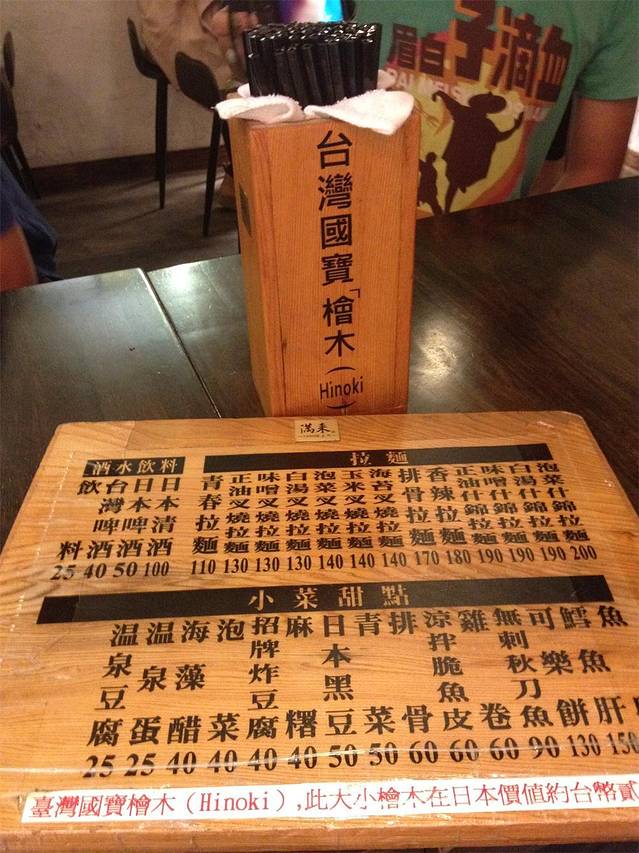 子滴血
眉白
台灣國寶「檜木(Hinoki)
滿来
酒水飲料
飲料 25
台灣啤酒 40
日本啤酒 50
日本清酒 100
拉麵
青春拉麵 110
正油叉燒拉麵 130
味噌叉燒拉麵 130
白湯叉燒拉麵 130
泡菜叉燒拉麵 140
玉米叉燒拉麵 140
海苔叉燒拉麵 140
排骨拉麵 170
香辣拉麵 180
正油什錦拉麵 190
味噌什錦拉麵 190
白湯什錦拉麵 190
泡菜什錦拉麵 200
小菜甜點
温泉豆腐 25
温泉蛋 25
海藻醋 40
泡菜 40
招牌炸豆腐 40
麻糬 40
日本黑豆 50
青菜 50
排骨 60
涼拌脆魚皮 60
雞卷 60
無刺秋刀魚 90
可樂餅 130
鱈魚肝 150
魚
臺灣國寶檜木(Hinoki),此大小檜木在日本價值約台幣貳